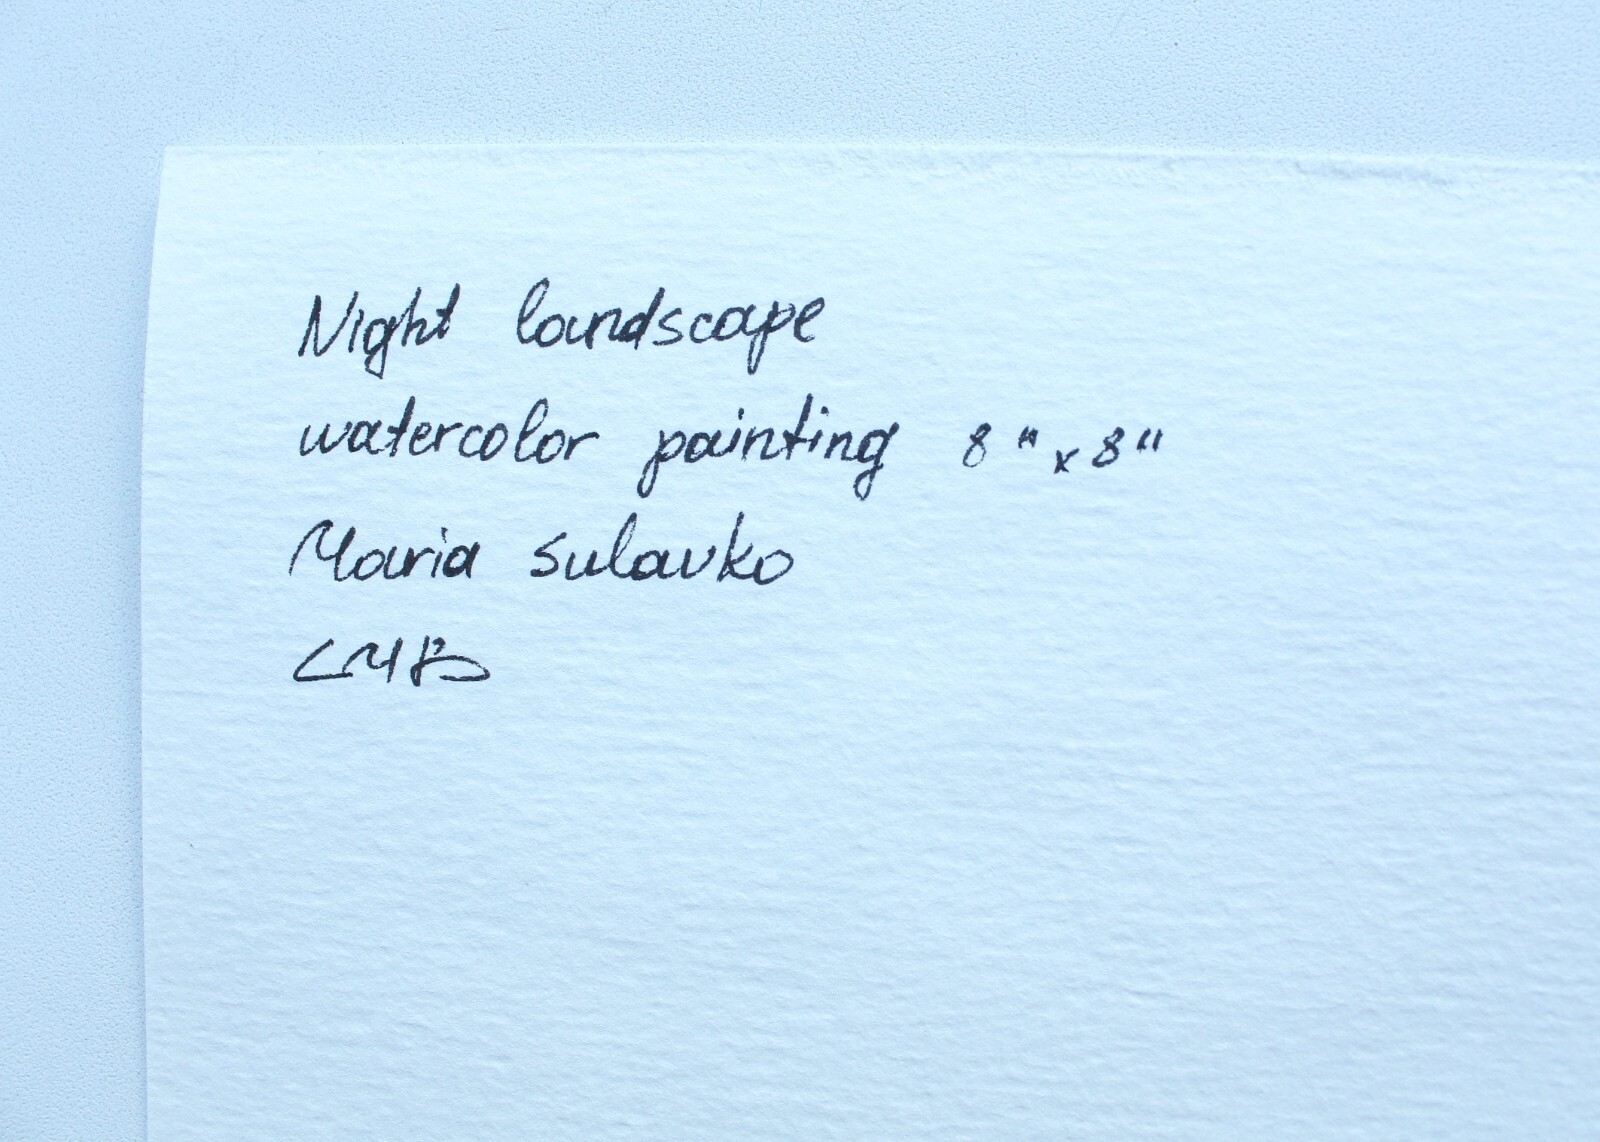 Night landscape
watercolor painting 8" x 8"
Maria Sulavko